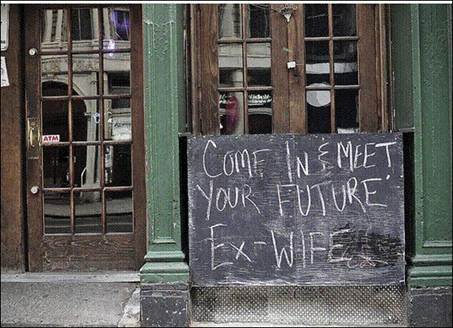 ATM
COME IN & MEET
YOUR FUTURE
EX-WIFE